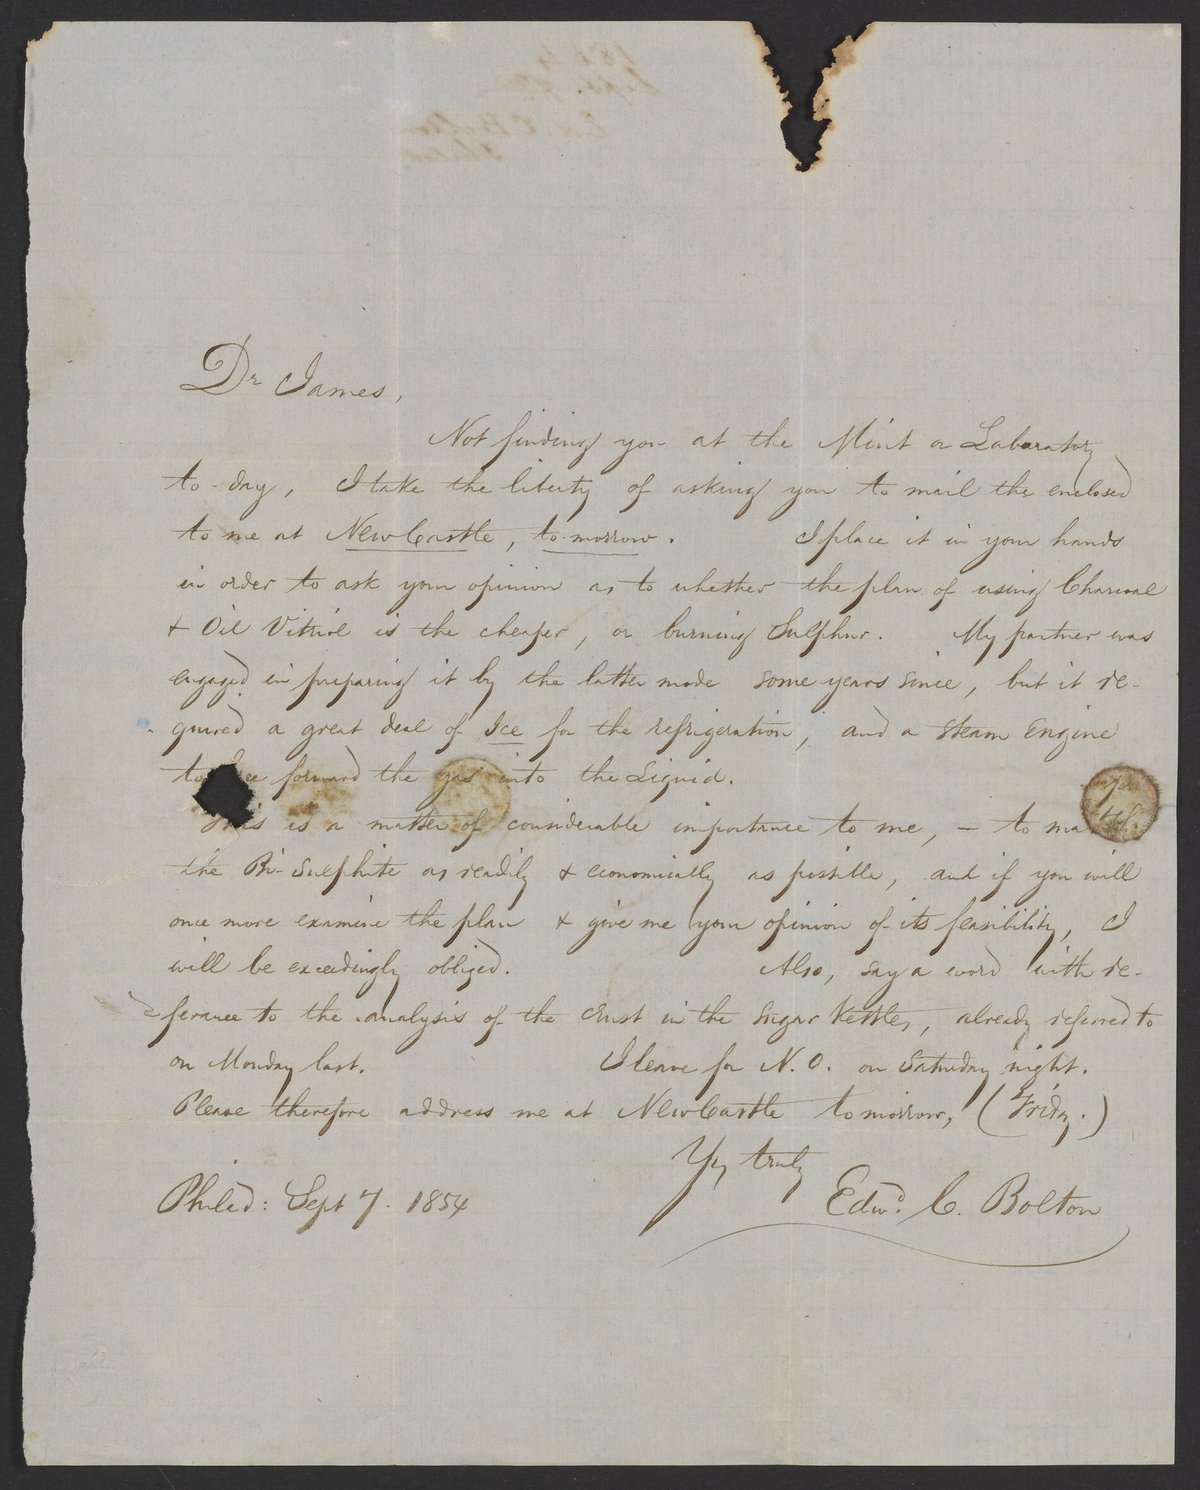 Dr James,
Not finding you at the Mint or Laboratory
to-day, I take the liberty of asking you to mail the enclosed
to me at NewCastle, to-morrow. I place it in your hands
in order to ask your opinion as to whether the plan of using Charcoal
& Oil Vitriol is the cheaper, or burning Sulphur. My partner was
engaged in preparing it by the latter mode some years since, but it re-
quired a great deal of Ice for the refrigeration, and a steam Engine
to forward the gas into the Liquid.
This is a matter of considerable importance to me, – to
the Bi-Sulphite as readily & economically as possible, and if you will
once more examine the plan & give me your opinion of its feasibility, I
will be exceedingly obliged. Also, say a word with re-
ference to the analysis of the Crust in the Sugar Kettles, already referred to
on Monday last. I leave for N. O. on Saturday night.
Please therefore address me at NewCastle tomorrow, (Friday.)
Yrs truly
Philad: Sept 7. 1854 Edwd. C. Bolton